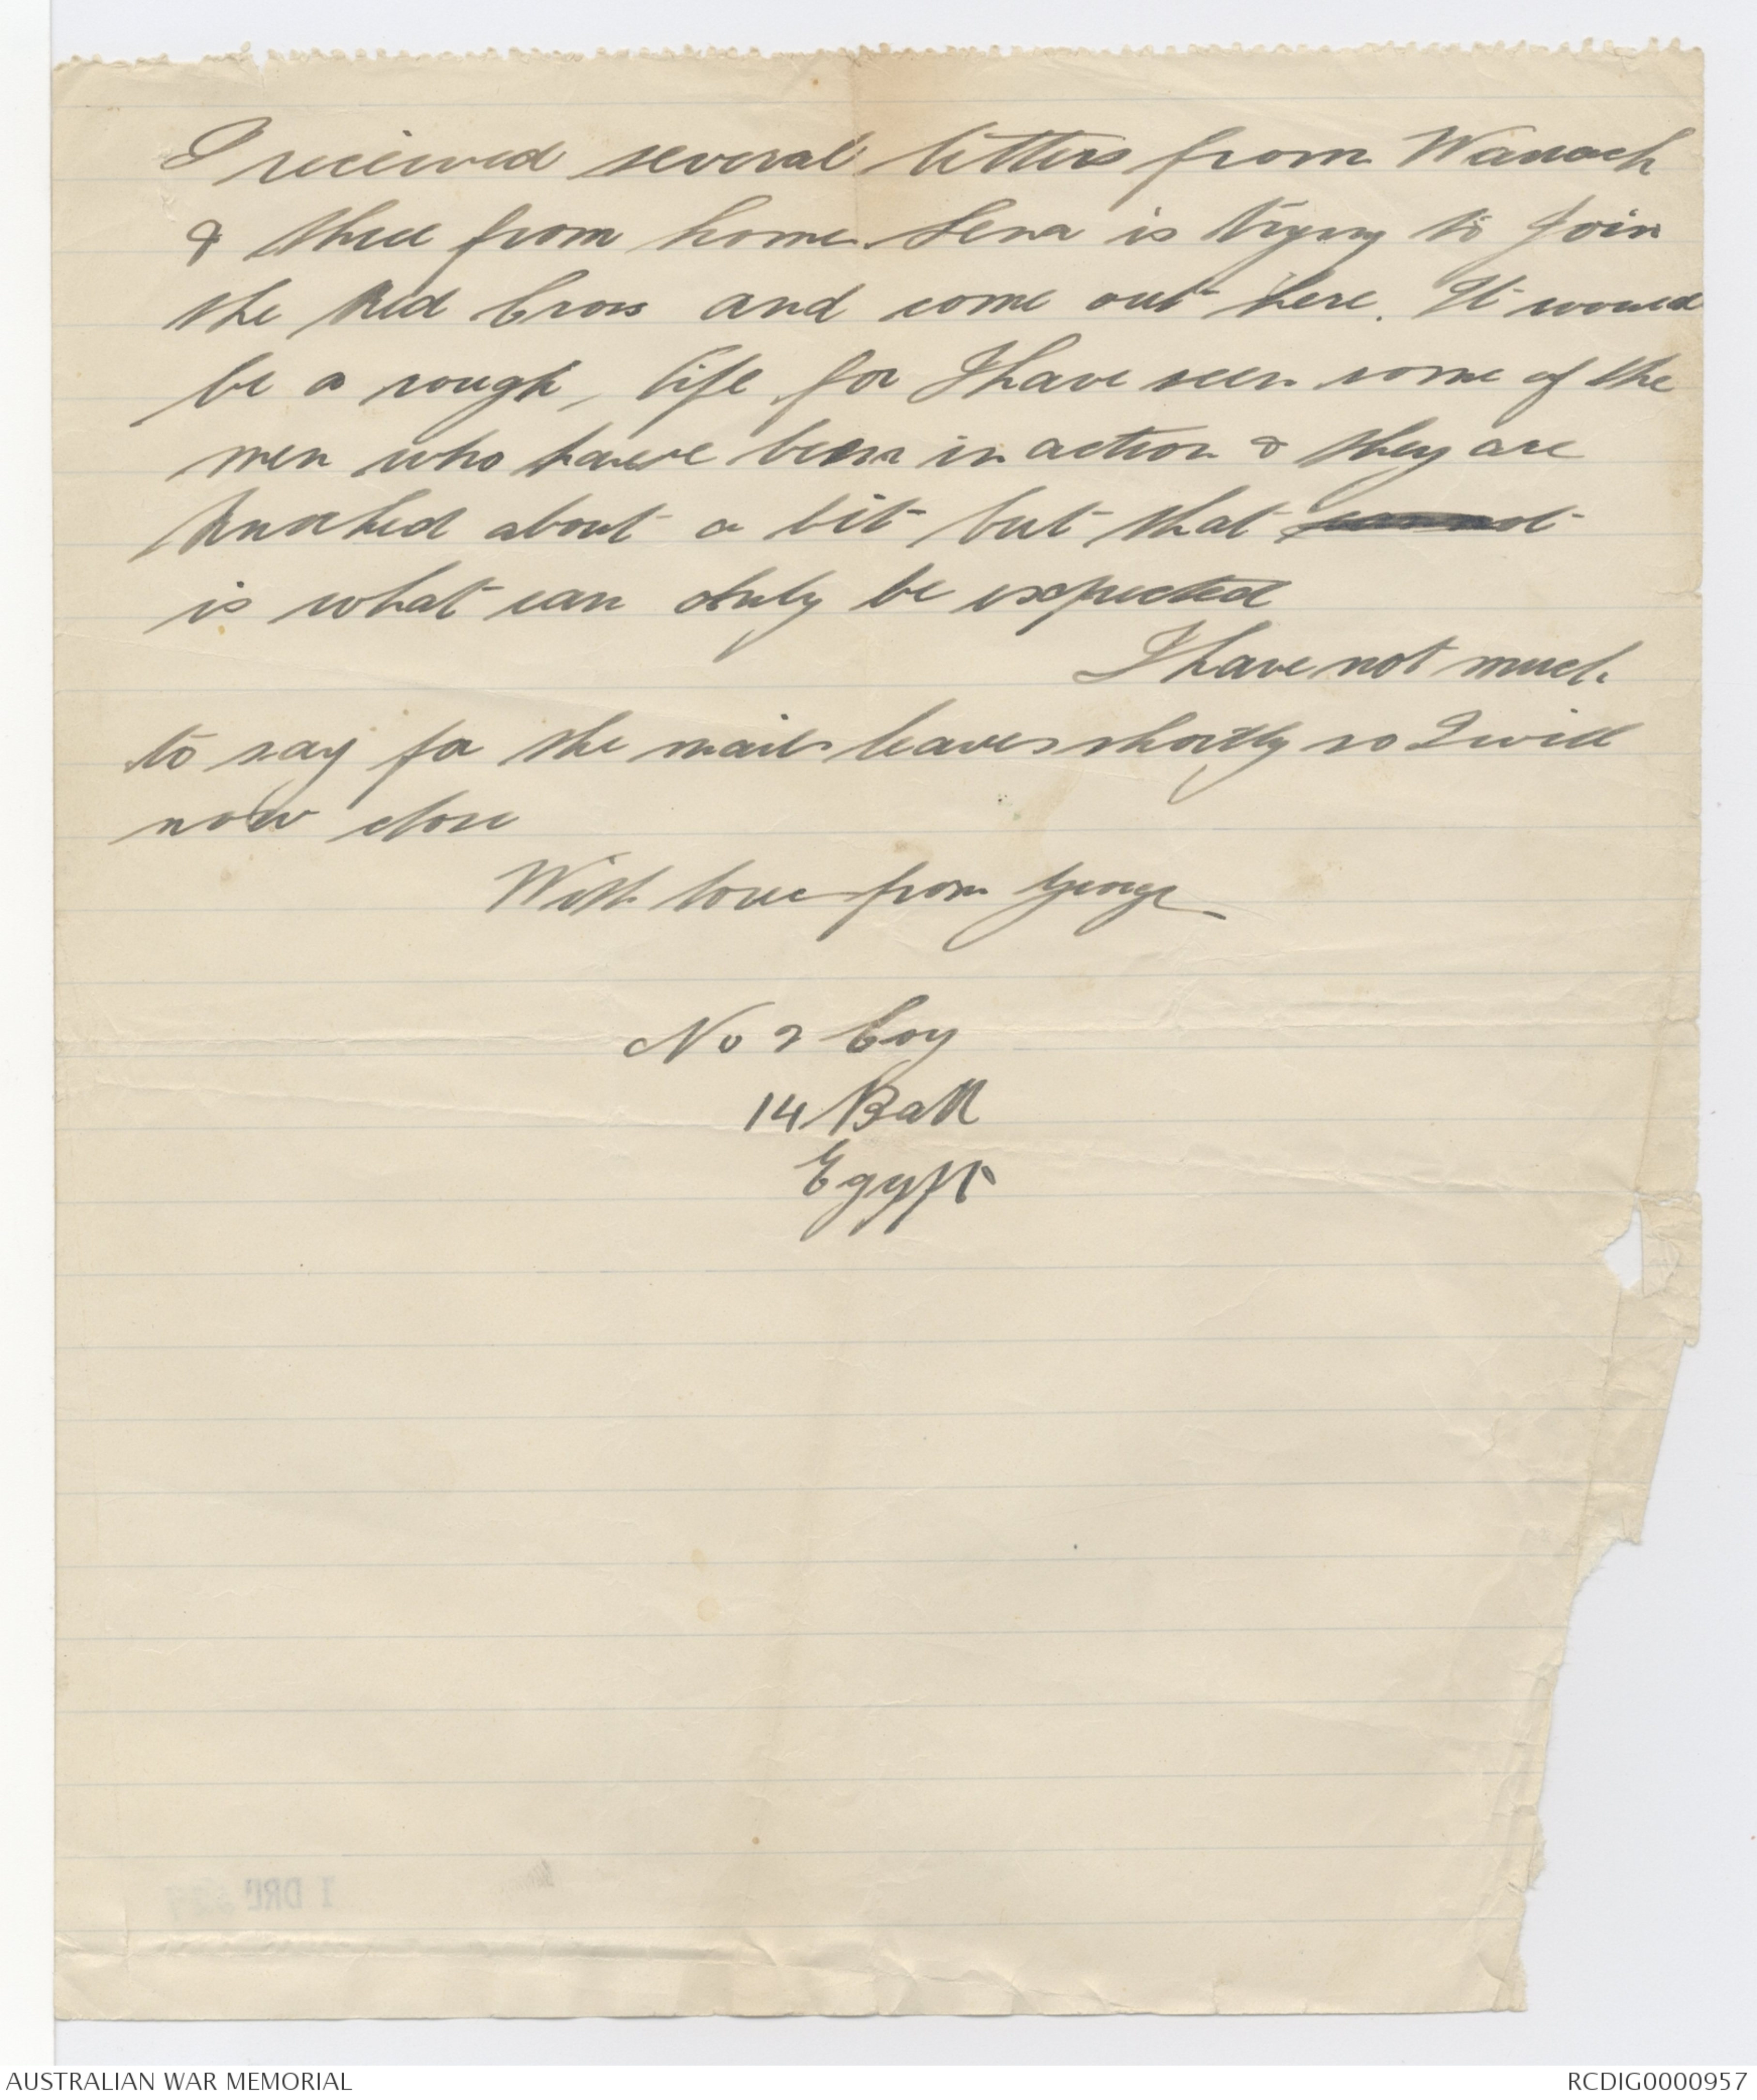 I received several letters from Warrack
& three from home. Lena is trying to join
the Red Cross and come out here. It would
be a rough, life for I have seen some of the
men who have been in action & they are
knocked about a bit but that cannot
is what can only be expected
I have not much
to say for the mail leaves shortly so I will
now close
With love from George
No 2 Coy
14 Batt
Egypt
1 DEC
AUSTRALIAN WAR MEMORIAL
RCDIG0000957